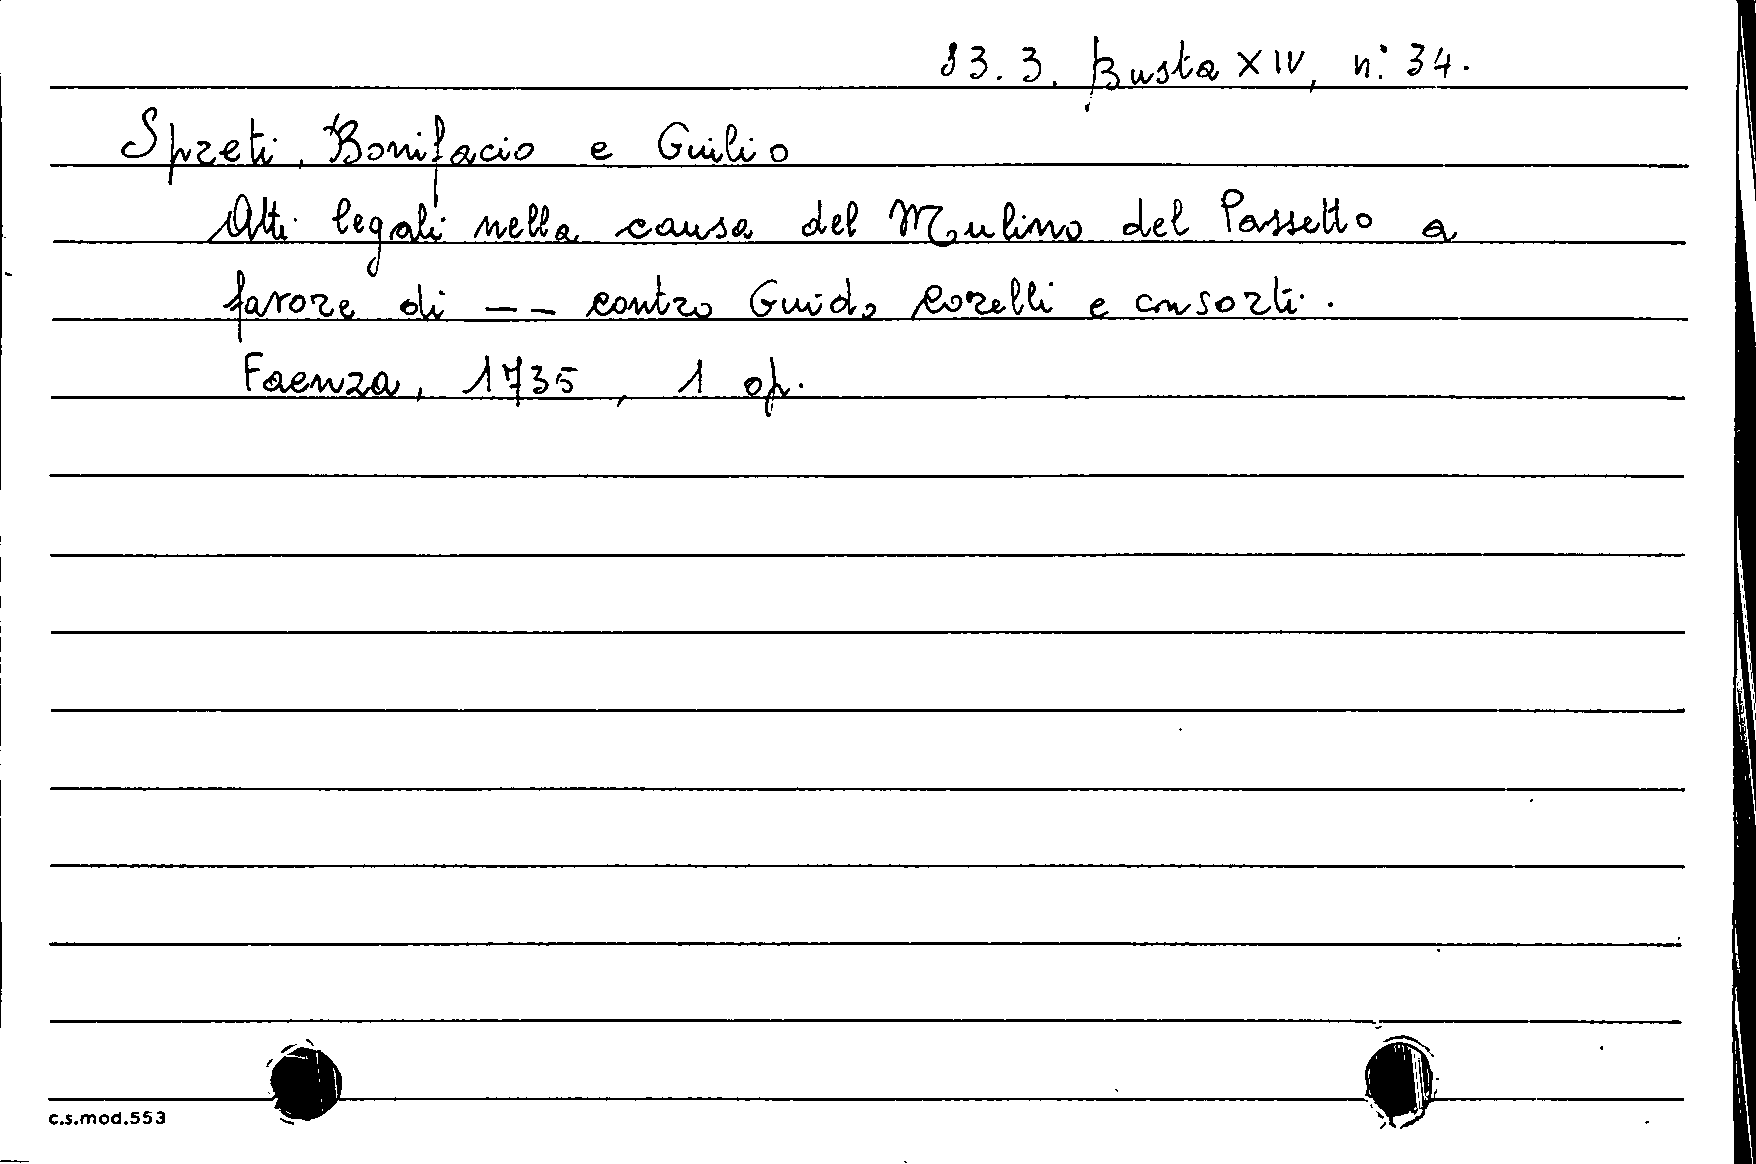 83.3. Busta XIV, n: 34.
Spreti, Bonifacio e Guilio
Atti legali nella causa del Mulino del Passetto a
favore di -- contro Guido Corelli e consorti.
Faenza, 1735, 1 op.
c.s.mod.553